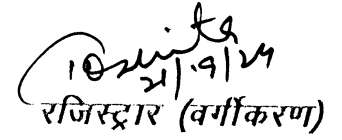 21/9/24
रजिस्ट्रार (वर्गीकरण)